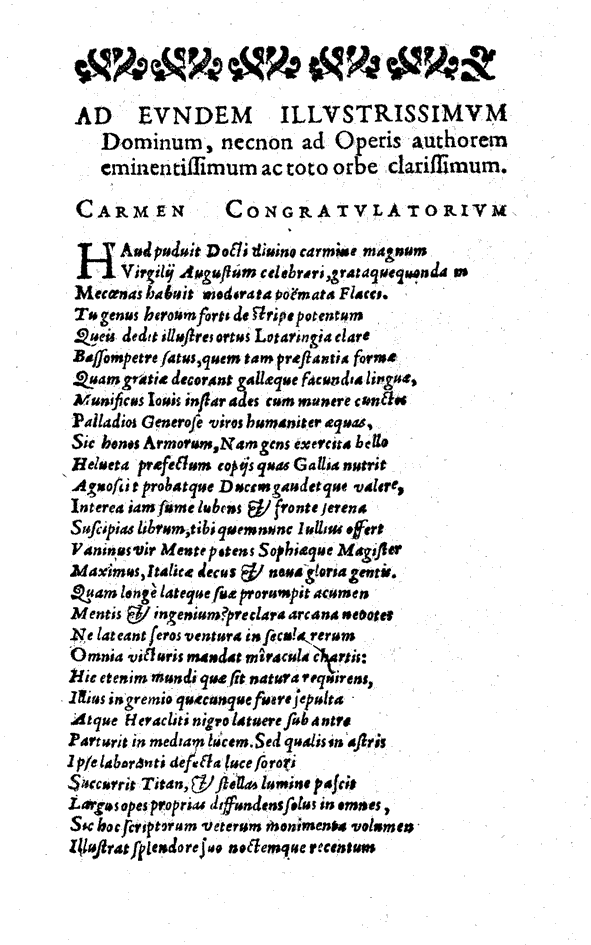 AD EVNDEM ILLVSTRISSIMVM
Dominum, necnon ad Operis authorem
eminentiſſimum ac toto orbe clariſſimum.
CARMEN CONGRATVLATORIVM
HAud puduit Docti divino carmine magnum
Virgilij Auguſtum celebrari, grataque quonda m
Mecœnas habuit moderata poëmata Flacci.
Tu genus heroum forti de ſtripe potentum
Queis dedit illuſtres ortus Lotaringia clare
Baſſompetre ſatus, quem tam præſtantia formæ
Quam gratiæ decorant gallæque facundia linguæ,
Munificus Iouis inſtar ades cum munere cunctos
Palladios Generoſe viros humaniter æquas,
Sic honos Armorum, Nam gens exercita bello
Helueta præfectum copijs quas Gallia nutrit
Agnoſcit probatque Ducem gaudet que valere,
Interea iam ſume lubens & fronte ſerena
Suſcipias librum, tibi quem nunc Iullius offert
Vaninus vir Mente potens Sophiæque Magiſter
Maximus, Italicæ decus & noua gloria gentis.
Quam longè lateque ſuæ prorumpit acumen
Mentis & ingenium? preclara arcana nepotes
Ne lateant ſeros ventura in ſecula rerum
Omnia victuris mandat miracula chartis:
Hic etenim mundi quæ ſit natura requirens,
Illius in gremio quæcunque fuere ſepulta
Atque Heracliti nigro latuere ſub antro
Parturit in mediam lucem. Sed qualis in aſtris
Ipſe laboranti defecta luce ſorori
Succurrit Titan, & ſtellas lumine paſcit
Largus opes proprias diffundens ſolus in omnes,
Sic hoc ſcriptorum veterum monimenta volumen
Illuſtrat ſplendore ſuo noctemque recentum